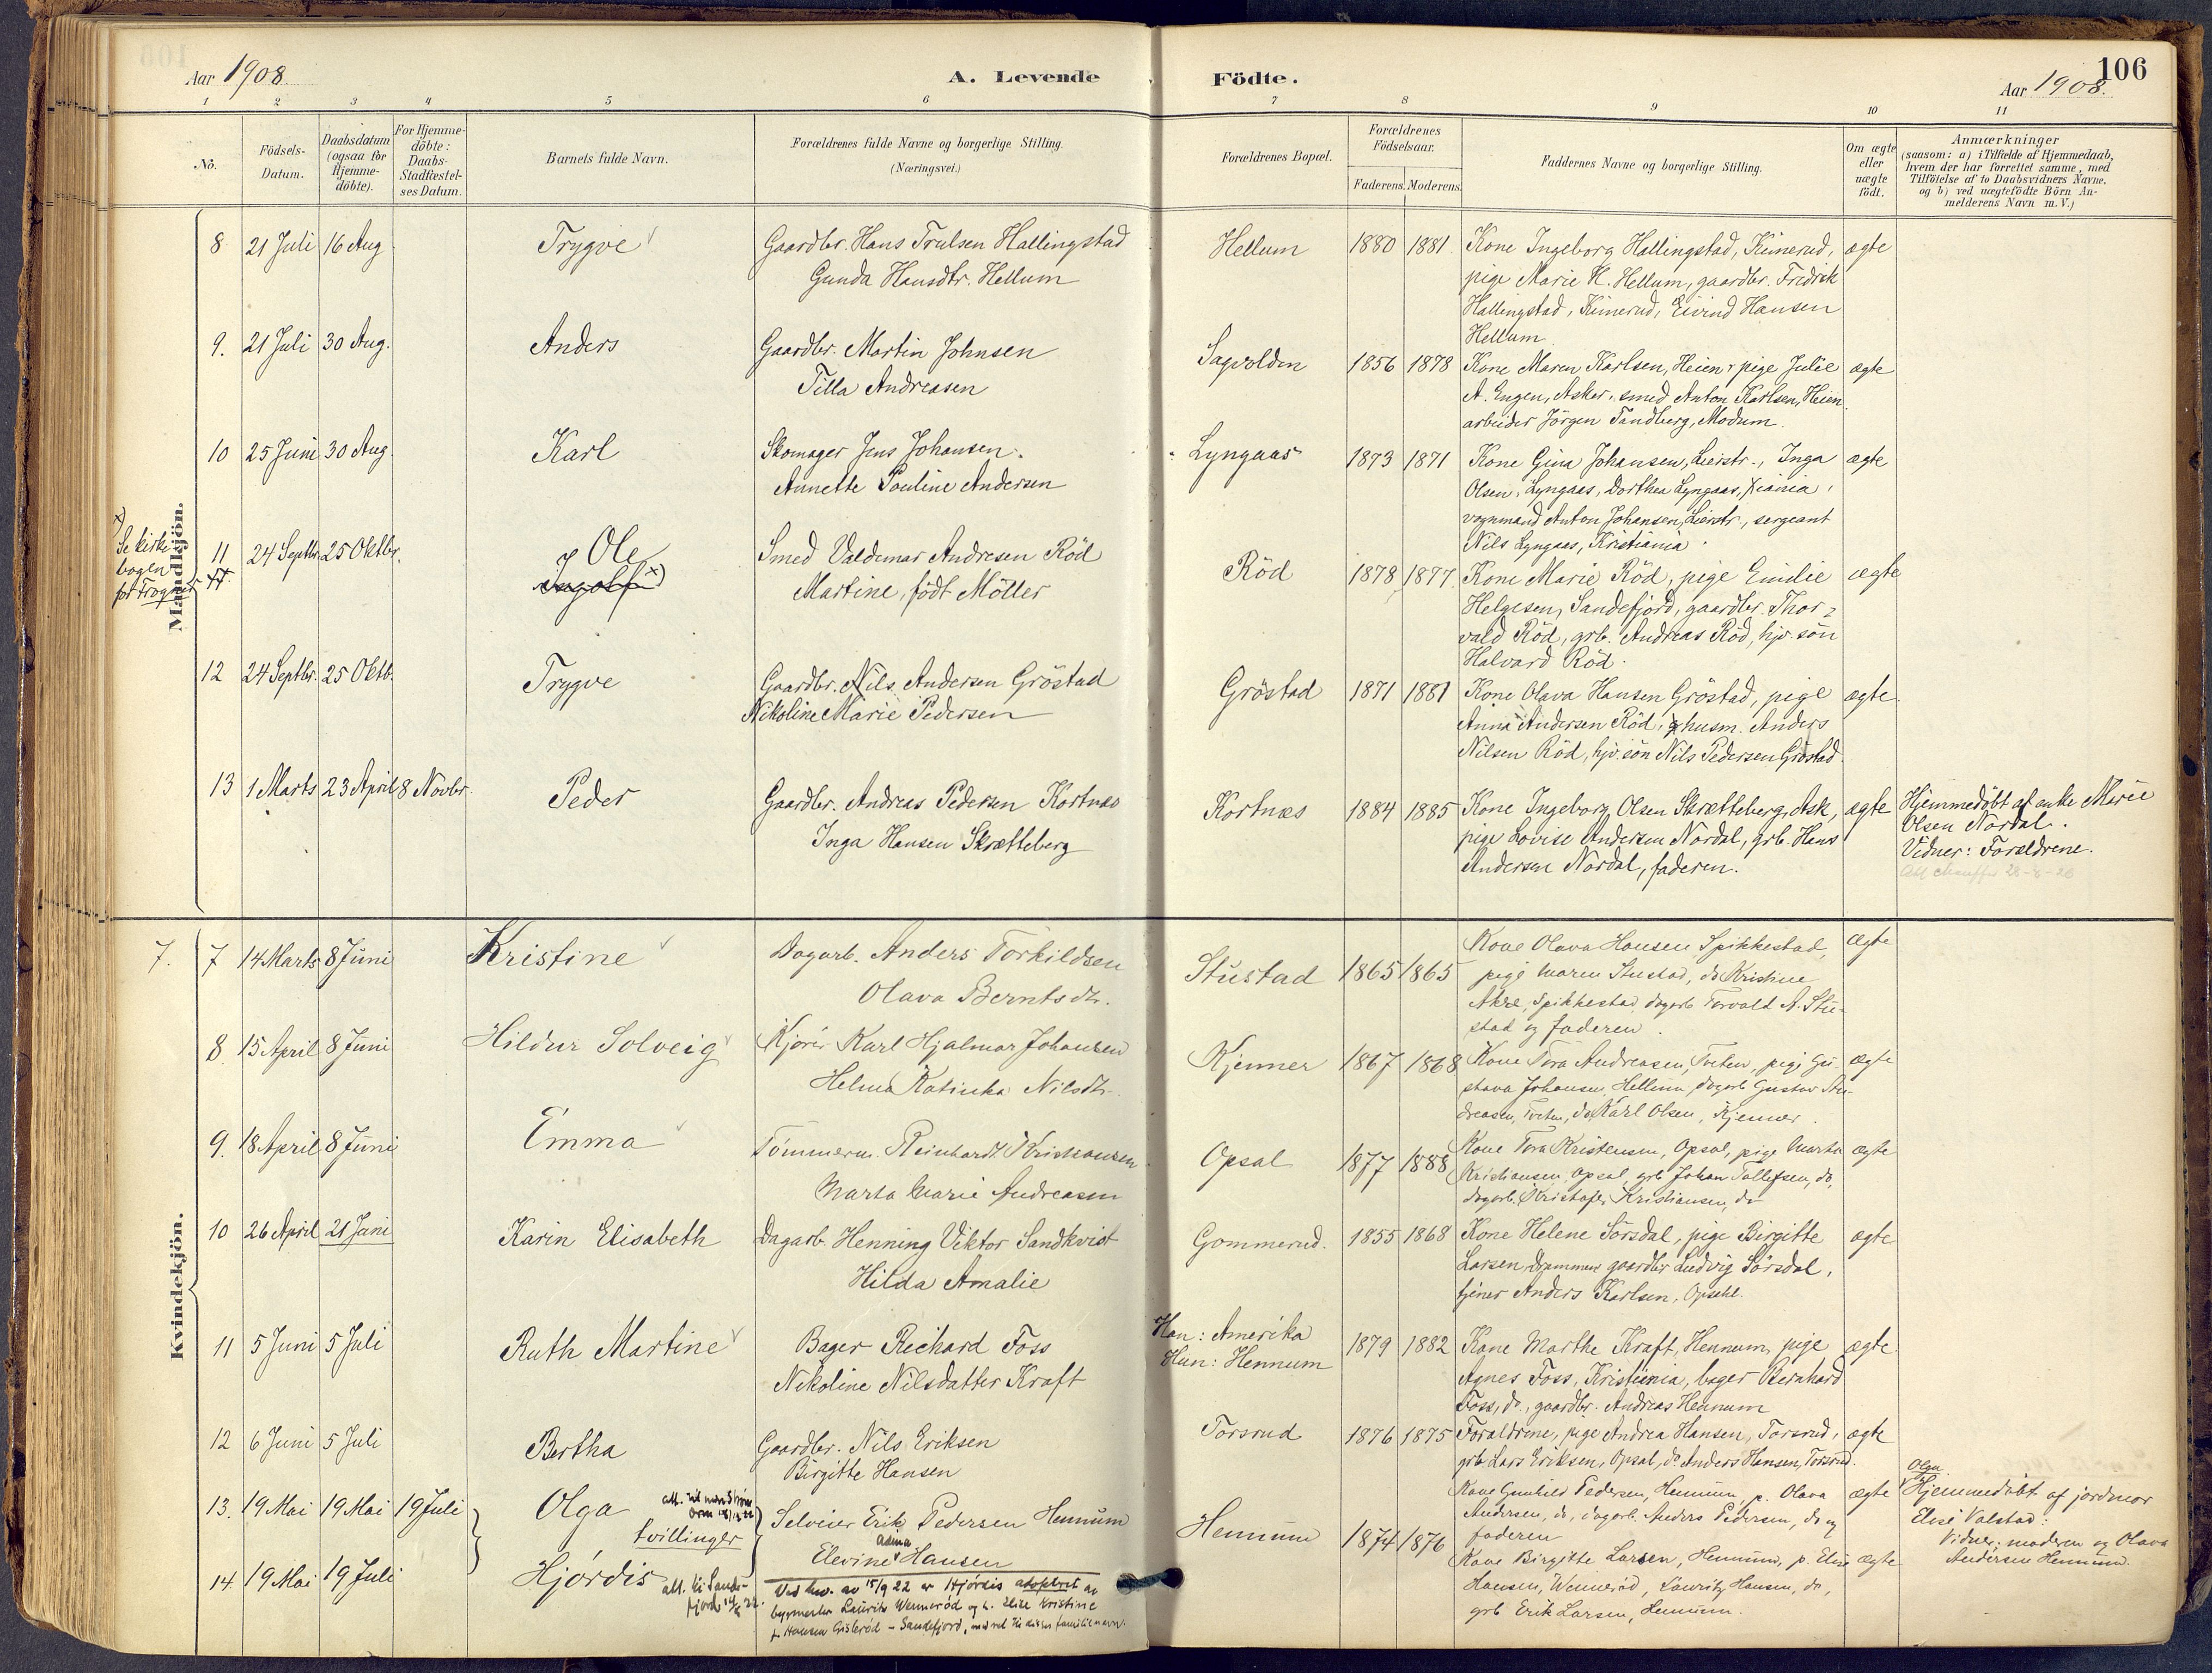 Aar 1908
A. Levende Födte.
106
Aar 1908.
1 2 3 4 5 6 7 8 9 10 11
No.
Födsels-Datum.
Daabsdatum (ogsaa for Hjemme-döbte).
For Hjemme-döbte: Daabs-Stadfæstel-ses Datum.
Barnets fulde Navn.
Forældrenes fulde Navne og borgerlige Stilling.
(Næringsvei.)
Forældrenes Bopæl.
Forældrenes Födselsaar.
Faderens. Moderens.
Faddernes Navne og borgerlige Stilling.
Om ægte eller uægte födt.
Anmærkninger
(saasom: a) i Tilfælde af Hjemmedaab,
hvem der har forrettet samme, med
Tilföielse af to Daabsvidners Navne,
og b) ved uægtefödte Börn An-
melderens Navn m. V.)
Mandkjön.
8 21 Juli 16 Aug Trygve Gaardbr. Hans Trulsen Hallingstad Hellum 1880 1881 Kone Ingeborg Hallingstad, Kimerud, ægte
Gunda Hansdtr. Hellum pige Marie H. Hellum, gaardbr. Fridrik
Hallingstad, Kimerud, Eivind Hansen
Hellum
9. 21 Juli 30 Aug. Anders Gaardbr. Martin Johnsen Sagvolden 1856 1878 Kone Maren Karlsen, Heien, pige Julie ægte
Tilla Andreasen A. Engen, Asker, smed Anton Karlsen, Heien
arbeider Jörgen Tandberg, Modum.
10 25 Juni 30 Aug. Karl Skomager Jens Johansen. Lyngaas 1873 1871 Kone Gina Johansen, Lierstr., Inga ægte
Annette Pouline Andersen Olsen, Lyngaas, Dorthea Lyngaas, Xiania,
vognmand Anton Johansen, Lierstr., sergeant
Nils Lyngaas, Kristiania.
x) Se kirke-
bogen
for Frogner
11 24 Septbr. 25 Oktbr. Ole Smed Valdemar Andresen Röd Röd 1878 1877 Kone Marie Röd, pige Emilie ægte
Ingolf x) Martine, födt Möller Helgesen, Sandefjord, gaardbr. Thor-
vald Röd, grb. Andreas Röd, hjv. sön
Halvard Röd.
12 24 Septbr. 25 Oktb. Trygve Gaardbr. Nils Andersen Gröstad Gröstad 1871 1881 Kone Olava Hansen Gröstad, pige ægte
Nikoline Marie Pedersen Anna Andersen Röd, husm. Anders
Nilsen Röd, hjv. sön Nils Pedersen Gröstad
13 1 Marts 23 April 8 Novbr. Peder Gaardbr. Andreas Pedersen Kortnæs Kortnæs 1884 1885 Kone Ingeborg Olsen Skrætteberg, Ask, ægte Hjemmedöbt af enke Marie
Inga Hansen Skrætteberg pige Lovise Andersen Nordal, grb. Hans Olsen Nordal.
Andersen Nordal, faderen. Vidner: Forældrene.
Kvindekjön.
7. 7 14 Marts 8 Juni Kristine Dagarb. Anders Torkildsen Stustad 1865 1865 Kone Olava Hansen Spikkestad, ægte
Olava Berntsdtr. pige Maren Stustad, do Kristine
Akre, Spikkestad, dagarb Torvald A. Stu-
stad og faderen.
8 15 April 8 Juni Hildur Solveig Kjörer Karl Hjalmar Johansen Kjenner 1867 1868 Kone Tora Andreasen, Tveten, pige Gu- ægte
Helma Katinka Nilsdtr. stava Johansen, Hellum, dagarb Gustav An-
dreasen, Tveten, do Karl Olsen, Kjenner.
9. 18 April 8 Juni Emma Tömmerm. Reinhardt Kristiansen Opsal 1877 1888 Kone Tora Kristensen, Opsal, pige Marta ægte
Marta Marie Andreasen Kristiansen, Opsal, grb Johan Tollefsen, do,
dagarb. Kristofer Kristiansen, do
10 26 April 21 Juni Karin Elisabeth Dagarb. Henning Viktor Sandkvist Gommerud. 1855 1868 Kone Helene Sörsdal, pige Birgitte ægte
Hilda Amalie Larsen, Drammen, gaardbr Ludvig Sörsdal,
tjener Anders Karlsen, Opsahl.
11 5 Juni 5 Juli Ruth Martine Bager Reichard Foss Han: Amerika 1879 1882 Kone Marthe Kraft, Hennum, pige ægte
Nikoline Nilsdatter Kraft Hun: Hennum Agnes Foss, Kristiania, bager Bernhard
Foss, do., gaardbr. Andreas Hennum
12 6 Juni 5 Juli Bertha Gaardbr. Nils Eriksen Torsrud 1876 1875 Forældrene, pige Andrea Hansen, Torsrud, ægte
Birgitte Hansen grb Lars Eriksen, Opsal, do Anders Hansen, Torsrud.
13. 19 Mai 19 Mai 19 Juli Olga Selveier Erik Pedersen Hennum Hennum 1874 1876 Kone Gunhild Pedersen, Hennum, p. Olava ægte Olga
tvillinger Andersen, do, dagarb. Anders Pedersen, do og Hjemmedöbt af jordmor
Elevine Adina Hansen faderen Elise Valstad.
Vidner: moderen og Olava
Andersen Hennum.
14. 19 Mai 19 Juli Hjördis Kone Birgitte Larsen, Hennum, p. Elise ægte
att. til Sande-
fjord Hansen, Wenneröd, Lauritz Hansen, do,
grb Erik Larsen, Hennum.
Ved bev. av 15/9 22 er Hjördis adoptert av
byggmester Laurits Wenneröd og h. Elise Kristine
f. Hansen Gisleröd - Sandefjord, med ret til disses familienavn.